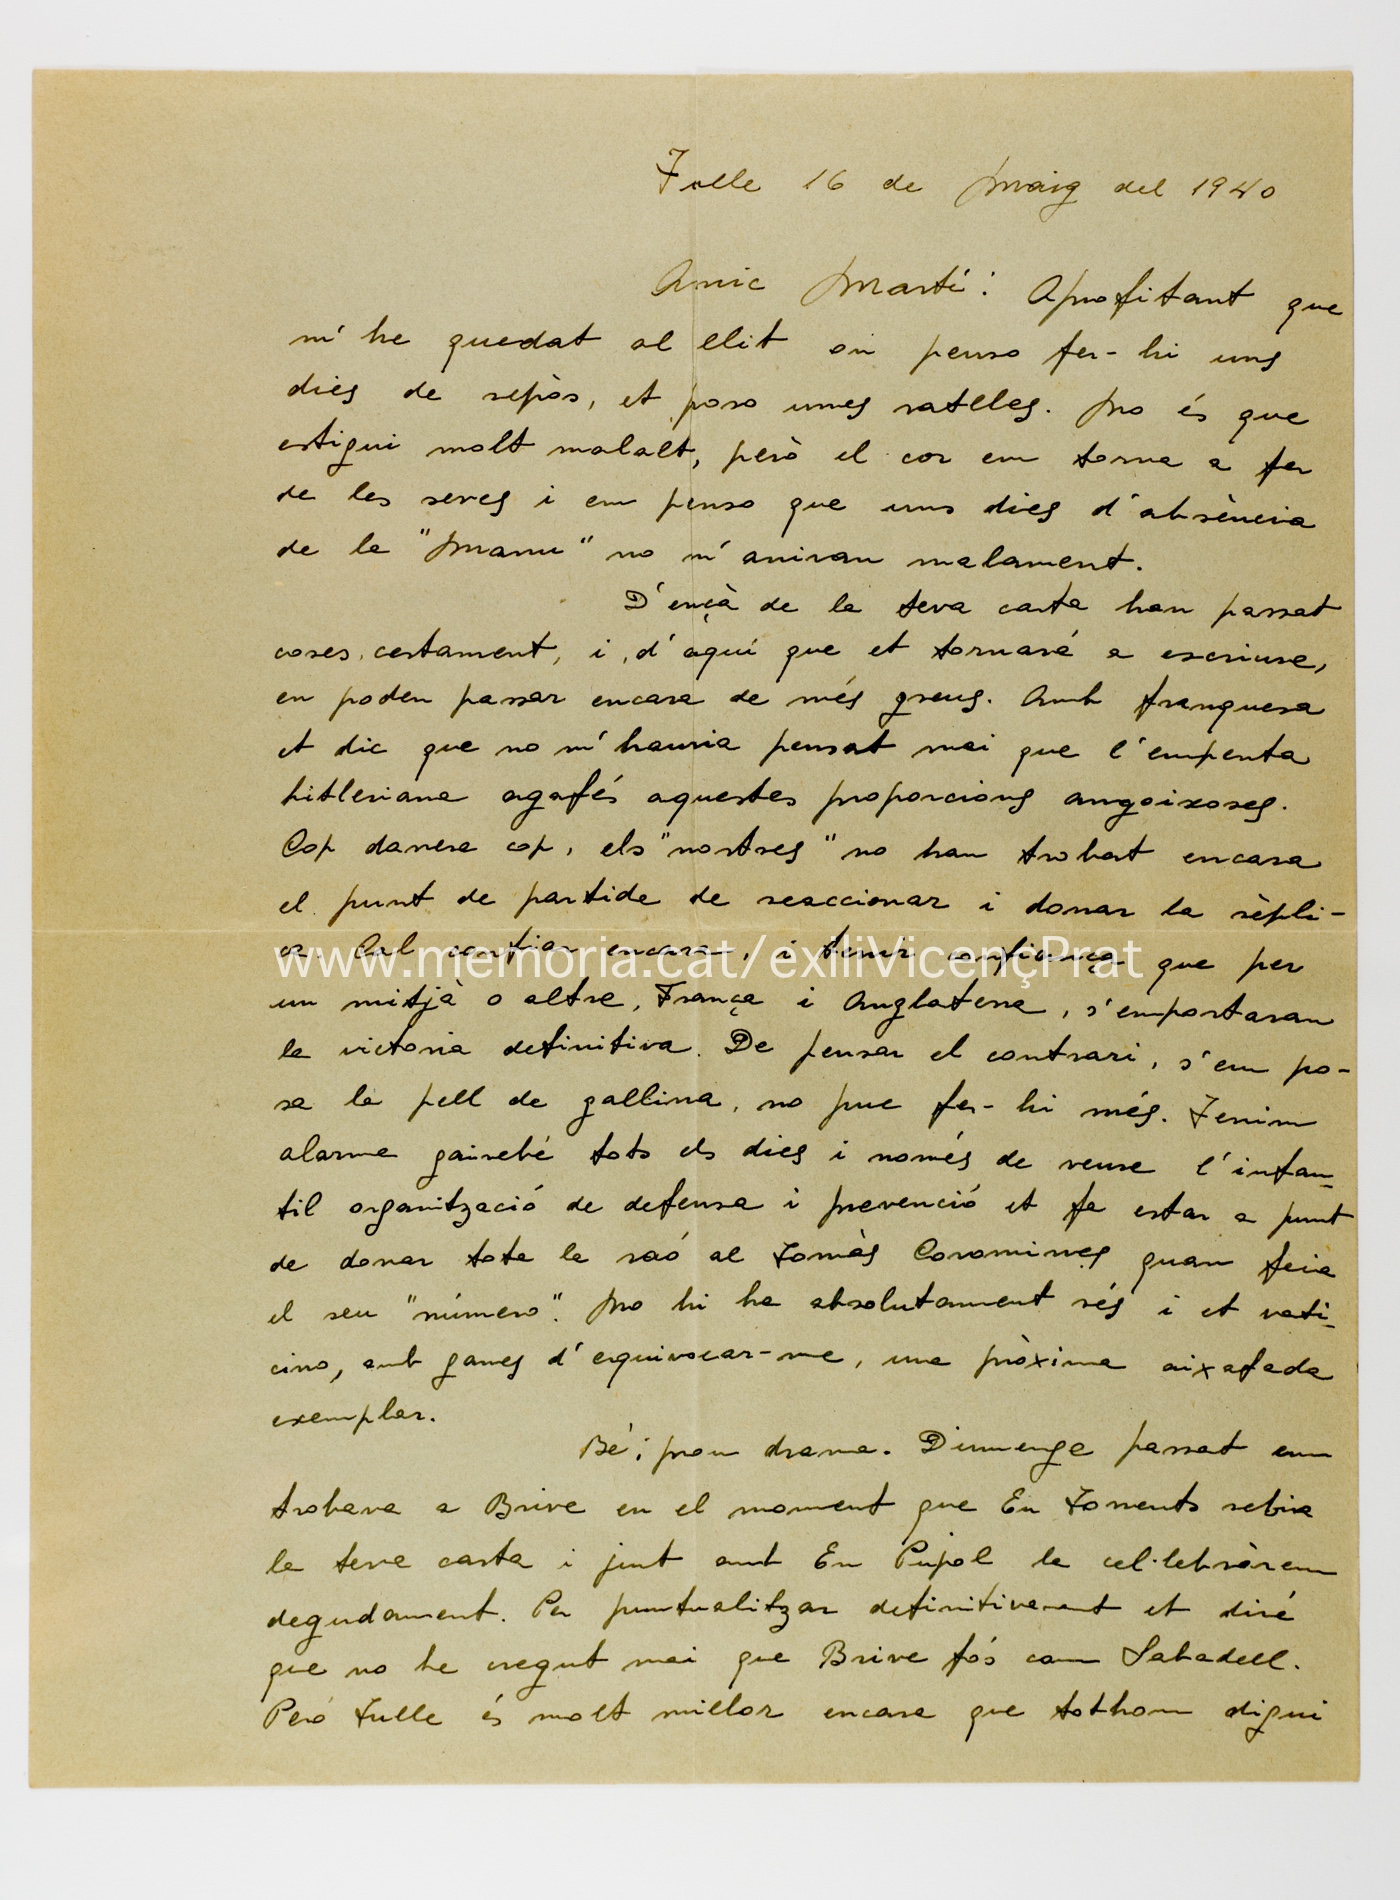 Tulle 16 de Maig del 1940
Amic Martí: Aprofitant que
m'he quedat al llit on penso fer-hi uns
dies de repòs, et poso unes ratlles. No és que
estigui molt malalt, però el cor em torna a fer
de les seves i em penso que uns dies d'absència
de la "Manu" no m'aniran malament.
D'ençà de la teva carta han passat
coses, certament, i, d'aquí que et tornaré a escriure,
en poden passar encara de més greus. Amb franquesa
et dic que no m'hauria pensat mai que l'empenta
hitleriana agafés aquestes proporcions angoixoses.
Cop darrera cop, els "nostres" no han trobat encara
el punt de partida de reaccionar i donar la rèpli-
ca. Cal confiar encara, i tenir confiança que per
un mitjà o altre, França i Anglaterra, s'emportaran
la victoria definitiva. De pensar el contrari, s'em po-
sa la pell de gallina, no puc fer-hi més. Tenim
alarma gairebé tots els dies i només de veure l'infan-
til organització de defensa i prevenció et fa estar a punt
de donar tota la raó al Tomàs Coromines quan feia
el seu "número". No hi ha absolutament rés i et vati-
cino, amb ganes d'equivocar-me, una pròxima aixafada
exemplar.
Bé, prou drama. Diumenge passat em
trobava a Brive en el moment que En Torrents rebia
la teva carta i junt amb En Pujol la cel·lebràrem
degudament. Per puntualitzar definitivament et diré
que no he cregut mai que Brive fós com Sabadell.
Però Tulle és molt millor encara que tothom digui
www.memoria.cat/exiliVicençPrat